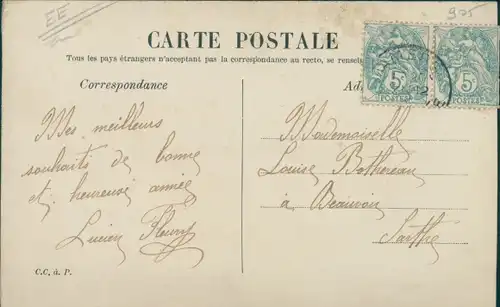 EE
905
CARTE POSTALE
Tous les pays étrangers n'acceptant pas la correspondance au recto, se renseig
Correspondance
Ad
5
POSTES
5
POSTES
Mes meilleurs
souhaits de bonne
et heureuse année
Lucien Fleury
Mademoiselle
Louise Bothereau
à Beauvoir
Sarthe
C.C. à P.